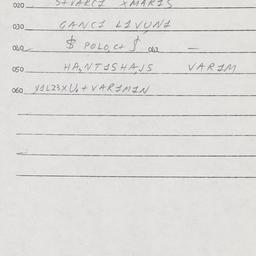 020 S+VARC1 XMAR1S
030 GANC1 L1VUN1
040 $ POLO,C+ $ 042 —
050 HA,NT1SHA,JS VAR1M
060 Y1L23XU,+VAR1M1N